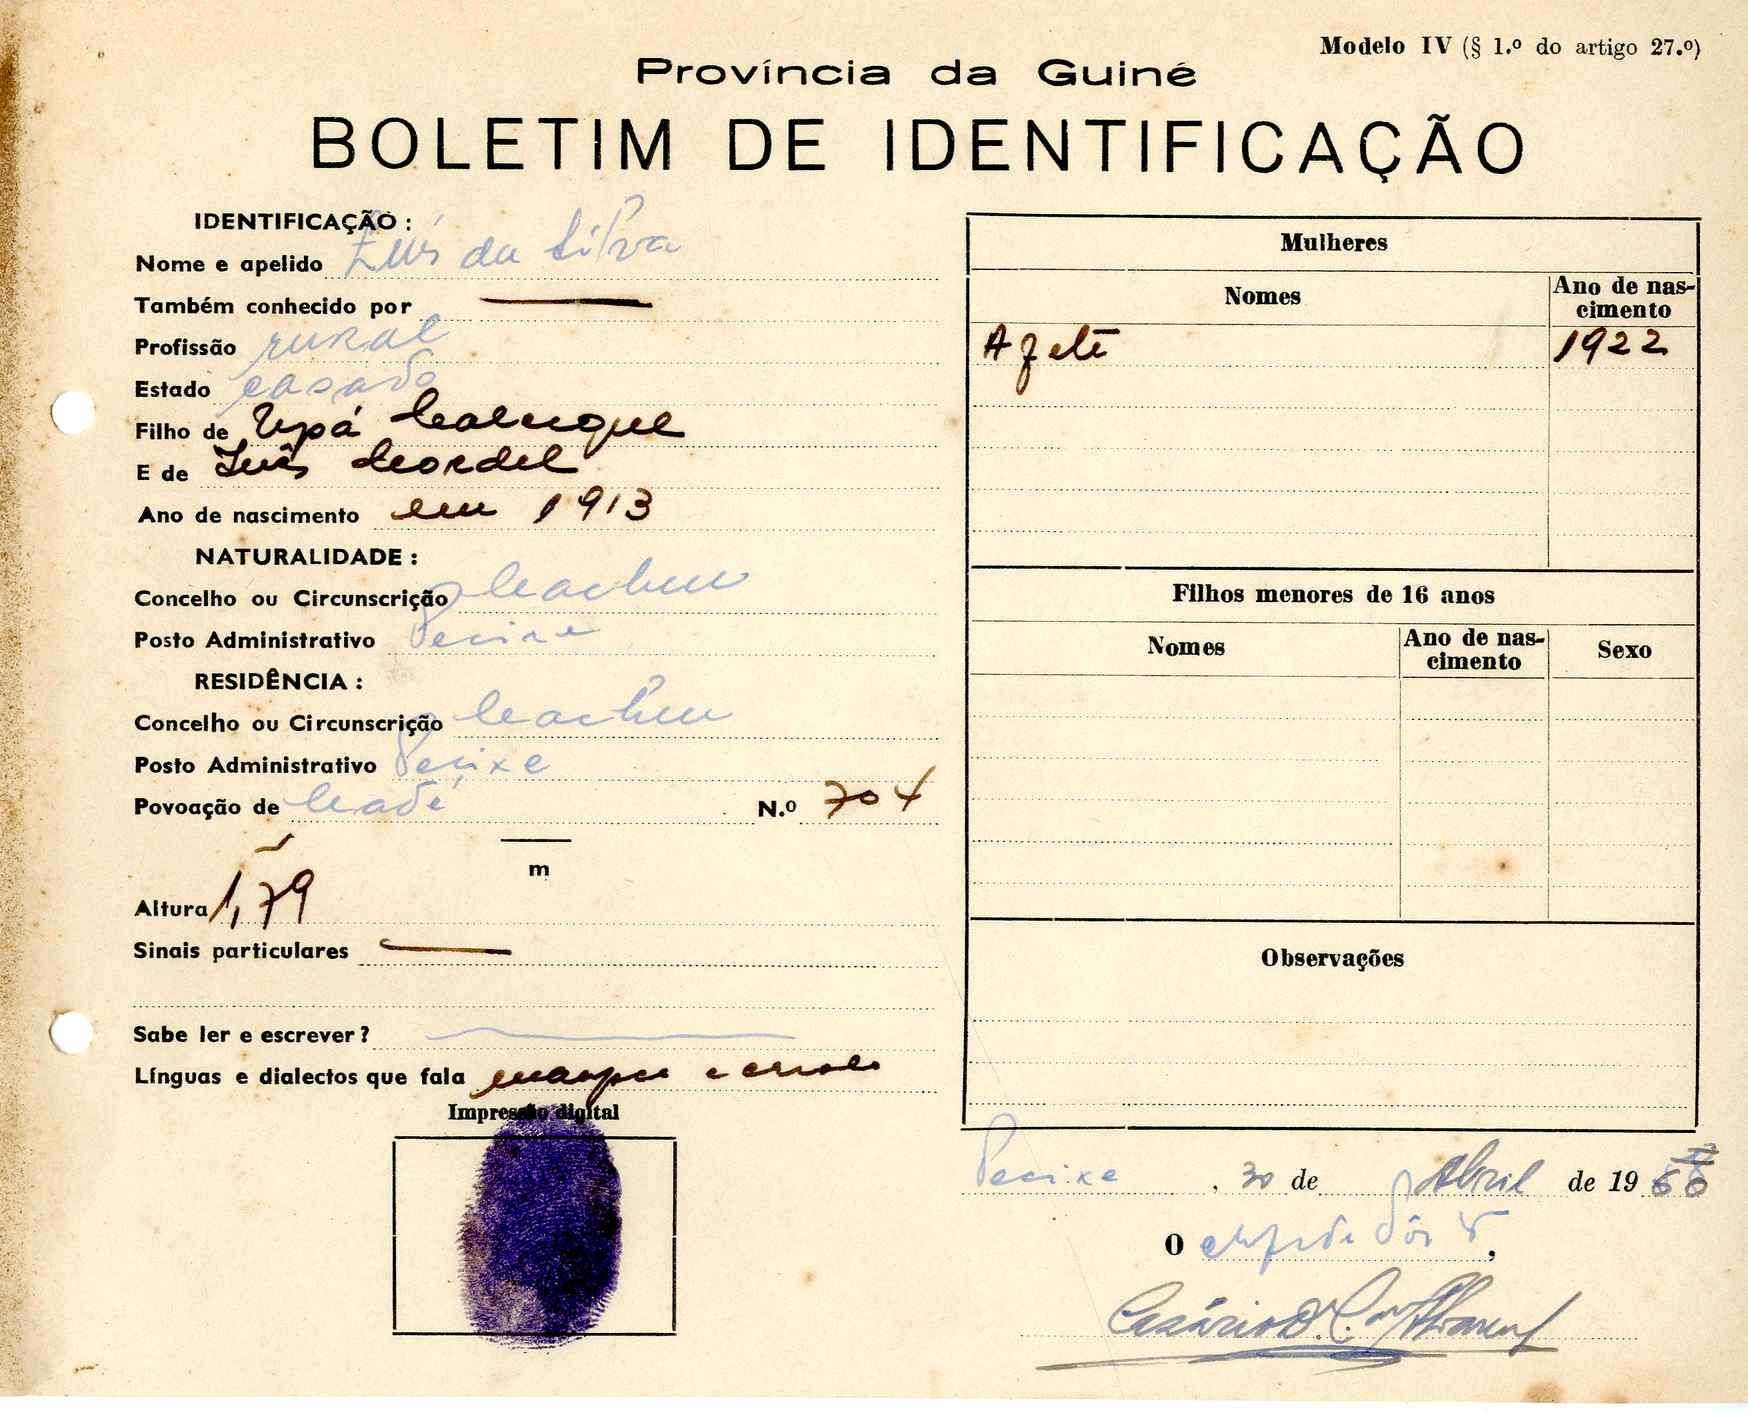 Modelo IV (§ 1.º do artigo 27.º)
Província da Guiné
BOLETIM DE IDENTIFICAÇÃO
IDENTIFICAÇÃO :
Nome e apelido Luís da Silva
Também conhecido por
Profissão rural
Estado casado
Filho de Upá
E de Luís
Ano de nascimento em 1913
NATURALIDADE :
Concelho ou Circunscrição Cacheu
Posto Administrativo Pecixe
RESIDÊNCIA :
Concelho ou Circunscrição Cacheu
Posto Administrativo Pecixe
Povoação de N.º 704
m
Altura 1,79
Sinais particulares
Sabe ler e escrever ?
Línguas e dialectos que fala
Impressão digital
Mulheres
Nomes
Ano de nascimento
1922
Filhos menores de 16 anos
Nomes
Ano de nascimento
Sexo
Observações
Pecixe, 30 de Abril de 19
O